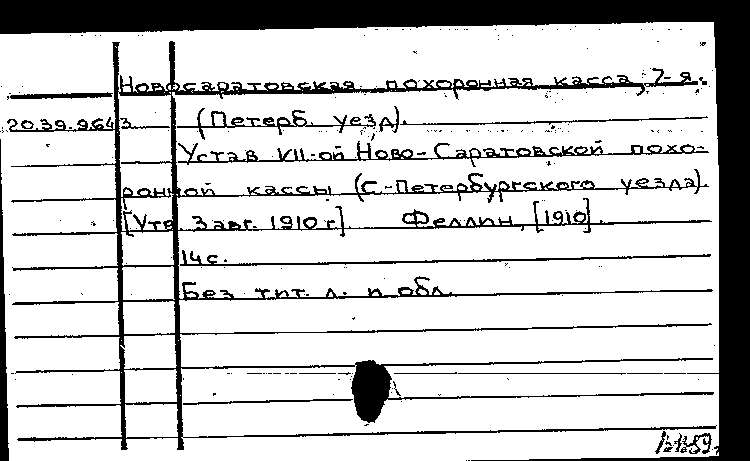 Новосаратовская похоронная касса, 7-я.
20.39.964 з (Петерб. уезд).
Устав VII-ой Ново-Саратовской похо-
ронной кассы (С.-Петербургского уезда).
[Утв. 3 авг. 1910 г.] Феллин, [1910].
14 с.
Без тит. л. и обл.